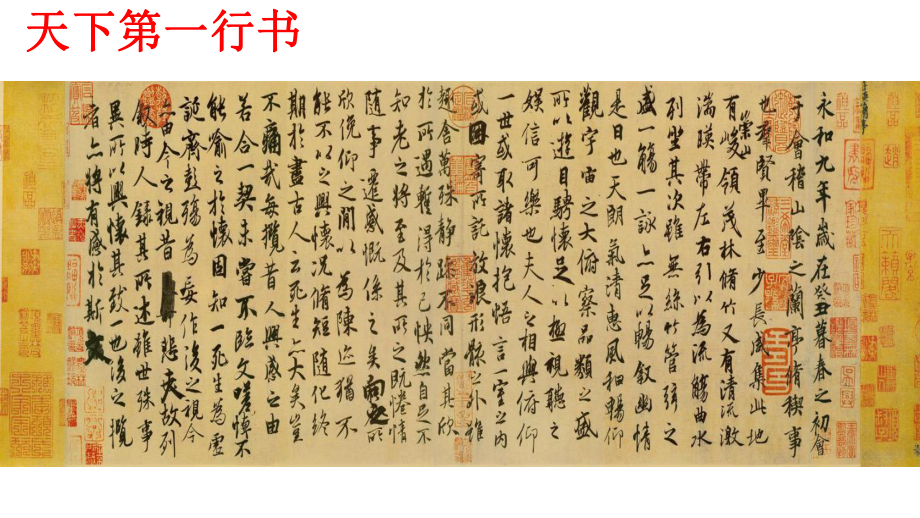 天下第一行书
永和九年歲在癸丑暮春之初會
于會稽山陰之蘭亭脩稧事
也羣賢畢至少長咸集此地
有崇山峻領茂林脩竹又有清流激
湍暎帶左右引以為流觴曲水
列坐其次雖無絲竹管弦之
盛一觴一詠亦足以暢敘幽情
是日也天朗氣清惠風和暢仰
觀宇宙之大俯察品類之盛
所以遊目騁懷足以極視聽之
娛信可樂也夫人之相與俯仰
一世或取諸懷抱悟言一室之內
或因寄所託放浪形骸之外雖
趣舍萬殊靜躁不同當其欣
於所遇蹔得於己怏然自足不
知老之將至及其所之既惓情
隨事遷感慨係之矣向之所
欣俛仰之閒以為陳迹猶不
能不以之興懷況脩短隨化終
期於盡古人云死生亦大矣豈
不痛哉每攬昔人興感之由
若合一契未嘗不臨文嗟悼不
能喻之於懷固知一死生為虛
誕齊彭殤為妄作後之視今
亦由今之視昔悲夫故列
敘時人錄其所述雖世殊事
異所以興懷其致一也後之攬
者亦將有感於斯文